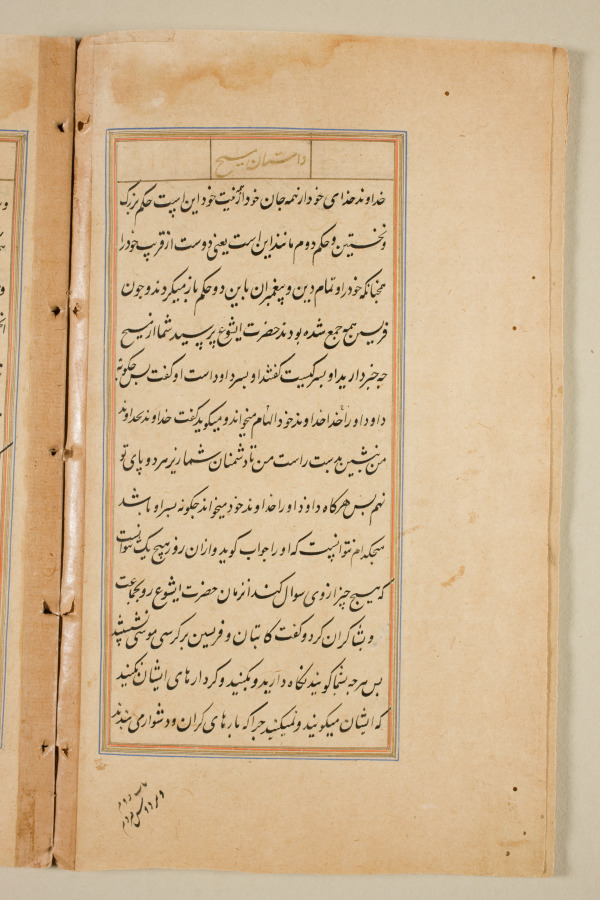 داستان مسیح
خداوند خدای خود از همه جان خود از نیت خود این است حکم بزرگ
و نخستین و حکم دوم مانند این است یعنی دوست از قریب خود را
همچنانکه خود را و تمام دین و پیغمبران باین دو حکم باز میکردند و چون
فریسن همه جمع شده بودند حضرت ایشوع پرسید شما از مسیح
چه خبر دارید او پسر کیست گفتند او پسر داود است او گفت پس چگونه
داود او را خدا خداوند خود الهام میخواند و میگوید گفت خداوند بخداوند
من بنشین بدست راست من تا دشمنان شما زیر هر دو پای تو
نهم پس هرگاه داود او را خداوند خود میخواند چگونه پسر او باشد
هیچکدام نتوانست که او را جواب گوید و ازان روز هیچ یک نتوانست
که هیچ چیز از وی سوال کند انزمان حضرت ایشوع رو بجماعت
و بشاگران کرد و گفت کاتبان و فریسین بر کرسی موشی نشستند
پس هرچه بشما گویند نگاه دارید و بکنید و کردارهای ایشان نکنید
که ایشان میگویند و نمیکنند چرا که بارهای گران و دشواری می‌بندند